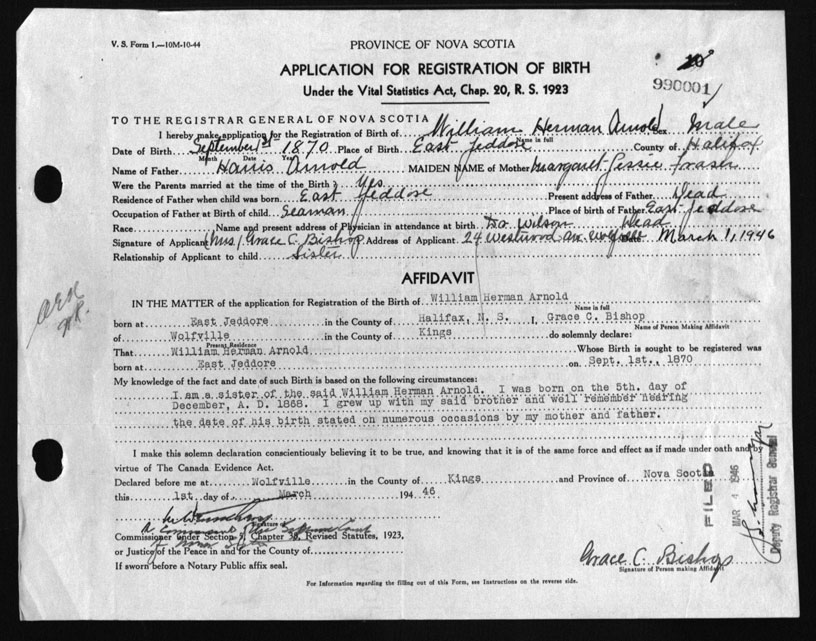 V. S. Form 1.—10M-10-44
PROVINCE OF NOVA SCOTIA
APPLICATION FOR REGISTRATION OF BIRTH
Under the Vital Statistics Act, Chap. 20, R. S. 1923
990001
TO THE REGISTRAR GENERAL OF NOVA SCOTIA
I hereby make application for the Registration of Birth of William Herman Arnold Sex Male
Name in full
Date of Birth September 1st 1870 Place of Birth East Jeddore County of Halifax
Month Date Year
Name of Father Harris Arnold MAIDEN NAME of Mother Margaret Jessie Fraser
Were the Parents married at the time of the Birth? Yes
Residence of Father when child was born East Jeddore Present address of Father Dead
Occupation of Father at Birth of child Seaman Place of birth of Father East Jeddore
Race Name and present address of Physician in attendance at birth Dr. Wilson Dead
Signature of Applicant (Mrs) Grace C. Bishop Address of Applicant 24 Westwood Av. Date March 1, 1946
Relationship of Applicant to child Sister
AFFIDAVIT
IN THE MATTER of the application for Registration of the Birth of William Herman Arnold
Name in full
born at East Jeddore in the County of Halifax, N. S. I, Grace C. Bishop
Name of Person Making Affidavit
of Wolfville in the County of Kings do solemnly declare:
Present Residence
That William Herman Arnold Whose Birth is sought to be registered was
born at East Jeddore on Sept. 1st., 1870
My knowledge of the fact and date of such Birth is based on the following circumstances:
I am a sister of the said William Herman Arnold. I was born on the 5th. day of
December, A. D. 1868. I grew up with my said brother and well remember hearing
the date of his birth stated on numerous occasions by my mother and father.
I make this solemn declaration conscientiously believing it to be true, and knowing that it is of the same force and effect as if made under oath and by
virtue of The Canada Evidence Act.
Declared before me at Wolfville in the County of Kings and Province of Nova Scotia
this 1st. day of March 194 46
Signature of
A Commissioner of the Supreme Court
of Nova Scotia
Commissioner under Section 3, Chapter 38, Revised Statutes, 1923,
or Justice of the Peace in and for the County of
If sworn before a Notary Public affix seal.
Grace C. Bishop
Signature of Person making Affidavit
For Information regarding the filling out of this Form, see Instructions on the reverse side.
FILED
MAR 4 1946
Deputy Registrar General